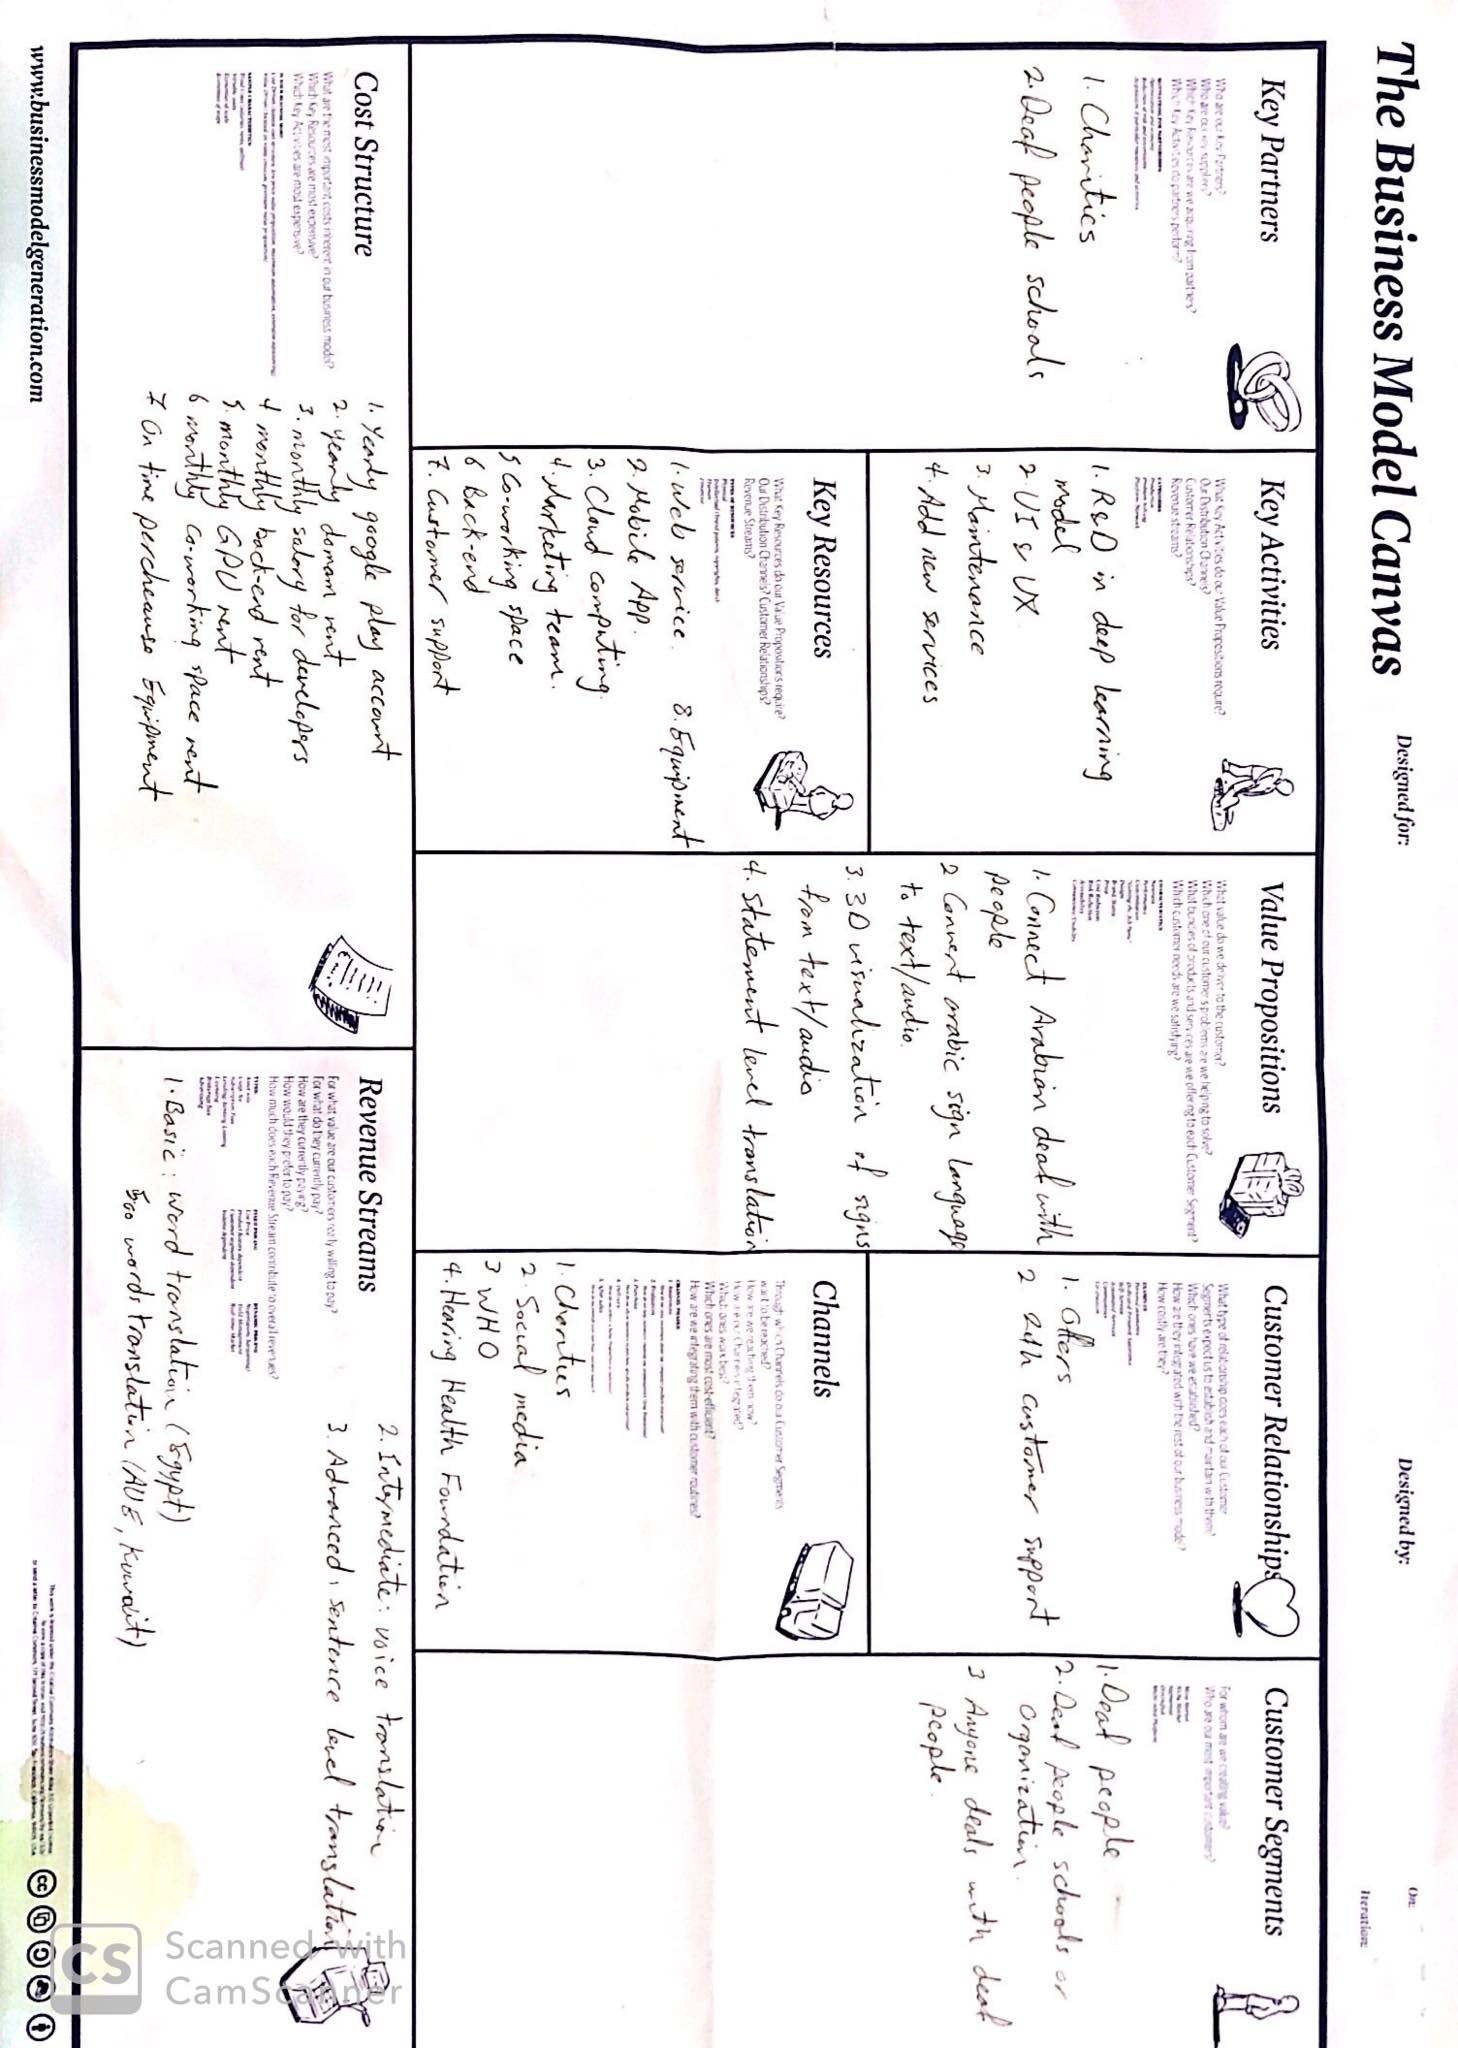 The Business Model Canvas
Designed for:
Designed by:
On:
Iteration:
Key Partners
Who are our Key Partners?
Who are our key suppliers?
Which Key Resources are we acquiring from partners?
Which Key Activities do partners perform?
1. Charities
2. Deaf people schools
Key Activities
What Key Activities do our Value Propositions require?
Our Distribution Channels?
Customer Relationships?
Revenue streams?
1. R&D in deep learning
model
2. UI & UX
3. Maintenance
4. Add new services
Key Resources
What Key Resources do our Value Propositions require?
Our Distribution Channels? Customer Relationships?
Revenue Streams?
1. Web service.
2. Mobile App.
3. Cloud computing.
4. Marketing team.
5 Co-working space
6 Back-end
7. Customer support
8. Equipment
Value Propositions
What value do we deliver to the customer?
Which one of our customer's problems are we helping to solve?
What bundles of products and services are we offering to each Customer Segment?
Which customer needs are we satisfying?
1. Connect Arabian deaf with
people
2 Convert arabic sign language
to text/audio.
3. 3D visualization of signs
from text/audio
4. Statement level translation
Customer Relationships
What type of relationship does each of our Customer
Segments expect us to establish and maintain with them?
Which ones have we established?
How are they integrated with the rest of our business model?
How costly are they?
1. Offers
2 24h customer support
Channels
Through which Channels do our Customer Segments
want to be reached?
How are we reaching them now?
How are our Channels integrated?
Which ones work best?
Which ones are most cost-efficient?
How are we integrating them with customer routines?
1. Charities
2. Social media
3 WHO
4. Hearing Health Foundation
Customer Segments
For whom are we creating value?
Who are our most important customers?
1. Deaf people
2. Deaf people schools or
organization.
3 Anyone deals with deaf
people.
Cost Structure
What are the most important costs inherent in our business model?
Which Key Resources are most expensive?
Which Key Activities are most expensive?
1. Yearly google play account
2. yearly domain rent
3. monthly salary for developers
4 monthly back-end rent
5. monthly GPU rent
6 monthly co-working space rent
7 On time percheause Equipment
Revenue Streams
For what value are our customers really willing to pay?
For what do they currently pay?
How are they currently paying?
How would they prefer to pay?
How much does each Revenue Stream contribute to overall revenues?
1. Basic: word translation (Egypt)
500 words translation (AUE, Kuwait)
2. Intermediate: voice translation
3. Advanced: sentence level translation
www.businessmodelgeneration.com
CS Scanned with
CamScanner